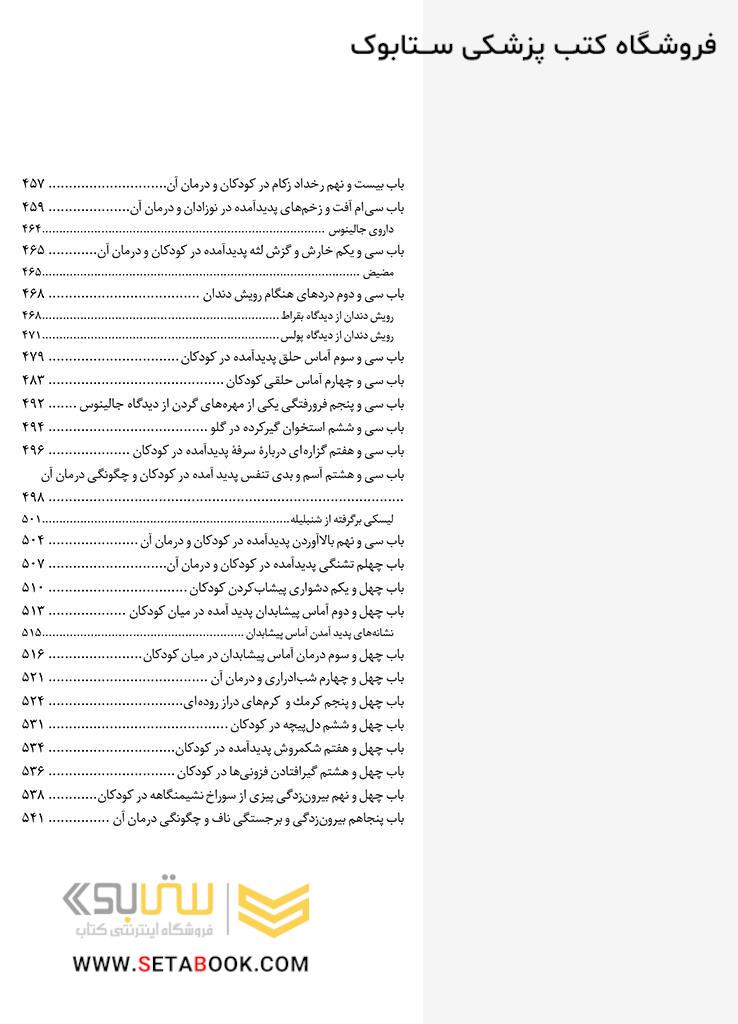 فروشگاه کتب پزشکی ستابوک
باب بیست و نهم رخداد زکام در کودکان و درمان آن............................. ۴۵۷
باب سی‌ام آفت و زخم‌های پدیدآمده در نوزادان و درمان آن.................... ۴۵۹
داروی جالینوس ................................................................................ ۴۶۴
باب سی و یکم خارش و گزش لثه پدیدآمده در کودکان و درمان آن............ ۴۶۵
مضیض ................................................................................ ۴۶۵
باب سی و دوم دردهای هنگام رویش دندان ..................................... ۴۶۸
رویش دندان از دیدگاه بقراط ..................................................................... ۴۶۸
رویش دندان از دیدگاه پولس ..................................................................... ۴۷۱
باب سی و سوم آماس حلق پدیدآمده در کودکان ................................ ۴۷۹
باب سی و چهارم آماس حلقی کودکان ........................................... ۴۸۳
باب سی و پنجم فرورفتگی یکی از مهره‌های گردن از دیدگاه جالینوس ....... ۴۹۲
باب سی و ششم استخوان گیرکرده در گلو ....................................... ۴۹۴
باب سی و هفتم گزاره‌ای دربارهٔ سرفهٔ پدیدآمده در کودکان .................... ۴۹۶
باب سی و هشتم آسم و بدی تنفس پدید آمده در کودکان و چگونگی درمان آن
....................................................................................... ۴۹۸
لیسکی برگرفته از شنبلیله ........................................................................ ۵۰۱
باب سی و نهم بالاآوردن پدیدآمده در کودکان و درمان آن ...................... ۵۰۴
باب چهلم تشنگی پدیدآمده در کودکان و درمان آن............................. ۵۰۷
باب چهل و یکم دشواری پیشاب‌کردن کودکان .................................. ۵۱۰
باب چهل و دوم آماس پیشابدان پدید آمده در میان کودکان ................... ۵۱۳
نشانه‌های پدید آمدن آماس پیشابدان .......................................................... ۵۱۵
باب چهل و سوم درمان آماس پیشابدان در میان کودکان....................... ۵۱۶
باب چهل و چهارم شب‌ادراری و درمان آن ....................................... ۵۲۱
باب چهل و پنجم کرمك و کرم‌های دراز روده‌ای................................. ۵۲۴
باب چهل و ششم دل‌پیچه در کودکان ............................................ ۵۳۱
باب چهل و هفتم شکمروش پدیدآمده در کودکان............................... ۵۳۴
باب چهل و هشتم گیرافتادن فزونی‌ها در کودکان ............................... ۵۳۶
باب چهل و نهم بیرون‌زدگی پیزی از سوراخ نشیمنگاهه در کودکان............ ۵۳۸
باب پنجاهم بیرون‌زدگی و برجستگی ناف و چگونگی درمان آن ............... ۵۴۱
ستابوک
فروشگاه اینترنتی کتاب
WWW.SETABOOK.COM